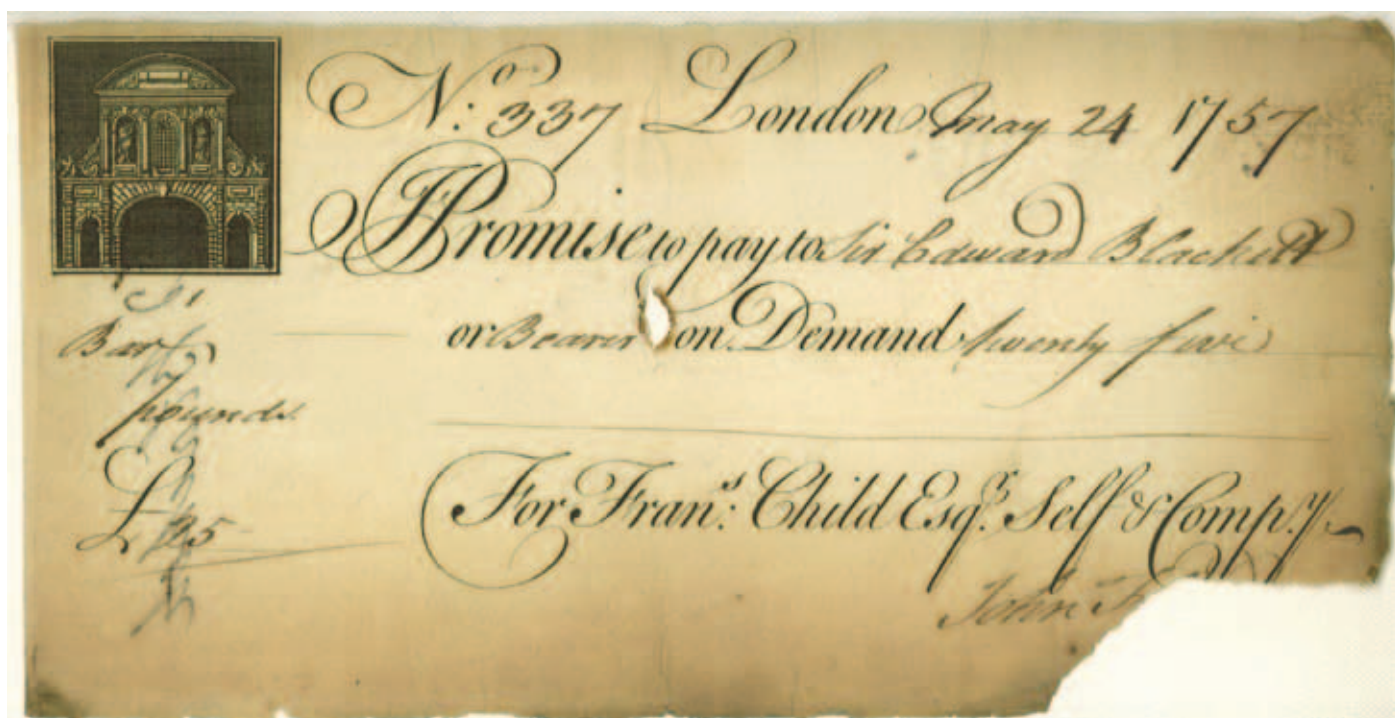 No. 337 London May 24 1757
I Promise to pay to Sir Edward Blackett
Bart or Bearer on Demand twenty five
pounds
For Frans: Child Esqr. Self & Compy.
£25
John